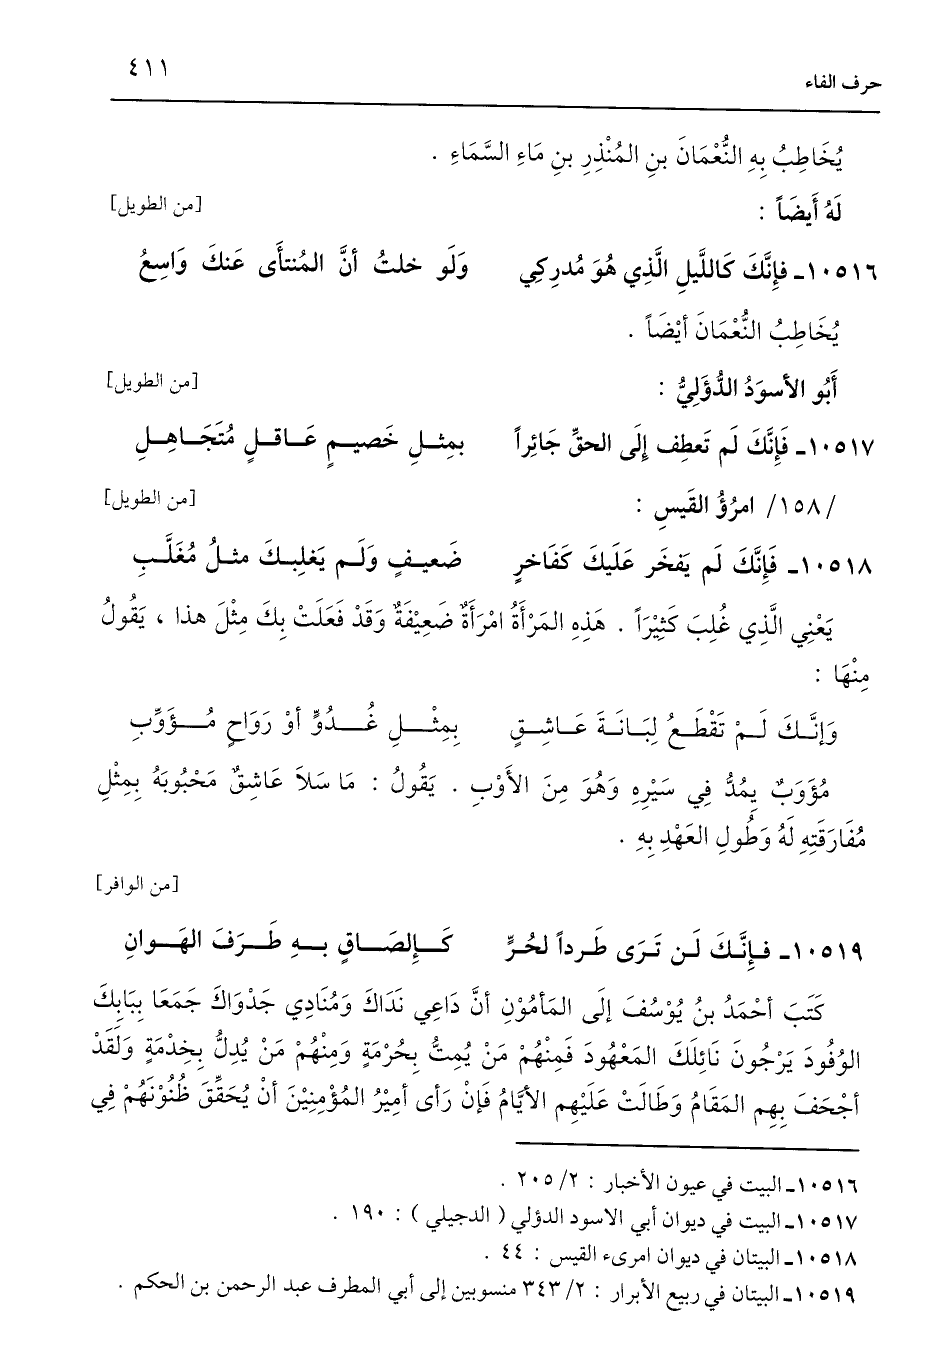 حرف الفاء ٤١١
يُخَاطِبُ بِهِ النُّعْمَانَ بنِ المُنْذِرِ بنِ مَاءِ السَّمَاءِ .
لَهُ أَيضَاً : [من الطويل]
١٠٥١٦ـ فإِنَّكَ كَاللَّيلِ الَّذِي هُوَ مُدرِكِي وَلَو خلتُ أنَّ المُنتأَى عَنكَ وَاسِعُ
يُخَاطِبُ النُّعْمَانَ أيْضَاً .
أَبُو الأسوَدُ الدُّؤَلِيُّ : [من الطويل]
١٠٥١٧ـ فَإِنَّكَ لَم تَعطِف إِلَى الحقِّ جَائِراً بمِثلِ خَصيمٍ عَاقلٍ مُتَجَاهِلِ
/١٥٨/ امرُؤُ القَيسِ : [من الطويل]
١٠٥١٨ـ فَإِنَّكَ لم يَفخَر عَلَيكَ كَفَاخرٍ ضَعيفٍ وَلَم يَغلِبكَ مثلُ مُغَلَّبِ
يَعْنِي الَّذِي غُلِبَ كَثِيْرَاً . هَذِهِ المَرْأَةُ امْرَأَةٌ ضَعِيْفَةٌ وَقَدْ فَعَلَتْ بِكَ مِثْلَ هذا ، يَقُولُ
مِنْهَا :
وَإنَّكَ لَمْ تَقْطَعُ لِبَانَةَ عَاشِقٍ بِمِثْلِ غُدُوٍّ أوْ رَوَاحٍ مُؤَوِّبِ
مُؤَوَبٌ يمُدُّ فِي سَيْرِهِ وَهُوَ مِنَ الأَوْبِ . يَقُولُ : مَا سَلاَ عَاشِقٌ مَحْبُوبَهُ بِمِثْلِ
مُفَارَقَتِهِ لَهُ وَطُولِ العَهْدِ بِهِ .
[من الوافر]
١٠٥١٩ـ فإِنَّكَ لَن تَرَى طَرداً لحُرٍّ كَإِلصَاقٍ بهِ طَرَفَ الهَوانِ
كَتَبَ أحْمَدُ بنُ يُوْسُفَ إلَى المَأمُوْنِ أنَّ دَاعِي نَدَاكَ وَمُنَادِي جَدْوَاكَ جَمَعَا بِبَابِكَ
الوُفُودَ يَرْجُونَ نَائِلَكَ المَعْهُودَ فَمِنْهُمْ مَنْ يُمِتُّ بِحُرْمَةٍ وَمِنْهُمْ مَنْ يُدِلُّ بِخِدْمَةٍ وَلَقَدْ
أجْحَفَ بِهِم المَقَامُ وَطَالَتْ عَلَيْهِم الأيَّامُ فَإنْ رَأى أمِيْرُ المُؤْمِنِيْنَ أنْ يُحَقِّقَ ظُنُوْنَهُمْ فِي
١٠٥١٦ـ البيت في عيون الأخبار : ٢/ ٢٠٥ .
١٠٥١٧ـ البيت في ديوان أبي الاسود الدؤلي ( الدجيلي ) : ١٩٠ .
١٠٥١٨ـ البيتان في ديوان امرىء القيس : ٤٤ .
١٠٥١٩ـ البيتان في ربيع الأبرار : ٢/ ٣٤٣ منسوبين إلى أبي المطرف عبد الرحمن بن الحكم .